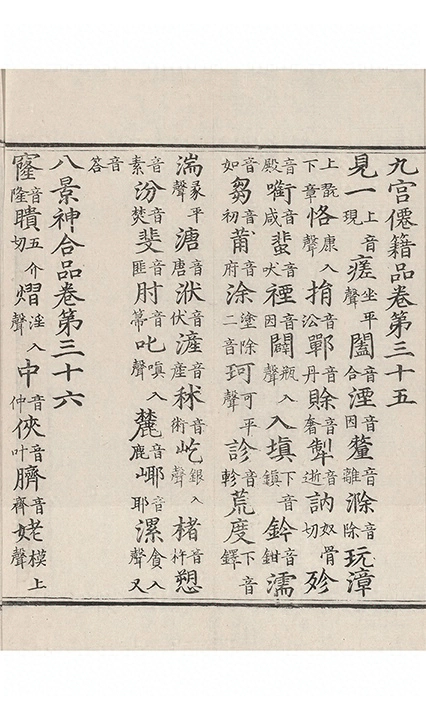 九宮僊籍品卷第三十五
見一上音現瘥坐平聲闔音合湮音因釐音離滁音除玩漳
上翫下章恪康入聲音公鄲音丹賒音奢音逝訥奴骨切殄
音殿銜音咸蜚音吠禋音因闢瓶入聲入填下音鎮鈐音鉗濡
音如芻音初莆音府涂塗除二音珂可平聲診音軫荒度下音鐸
湍彖平聲溏音唐洑音伏滻音産秫音術屹銀入聲楮音杵愬
音素汾音焚斐音匪肘音箒叱嗔入聲麓音鹿音耶漯貪入聲又
音答
八景神合品卷第三十六
窿音隆聵五介切熠淫入聲中音仲俠音叶臍音齊姥模上聲